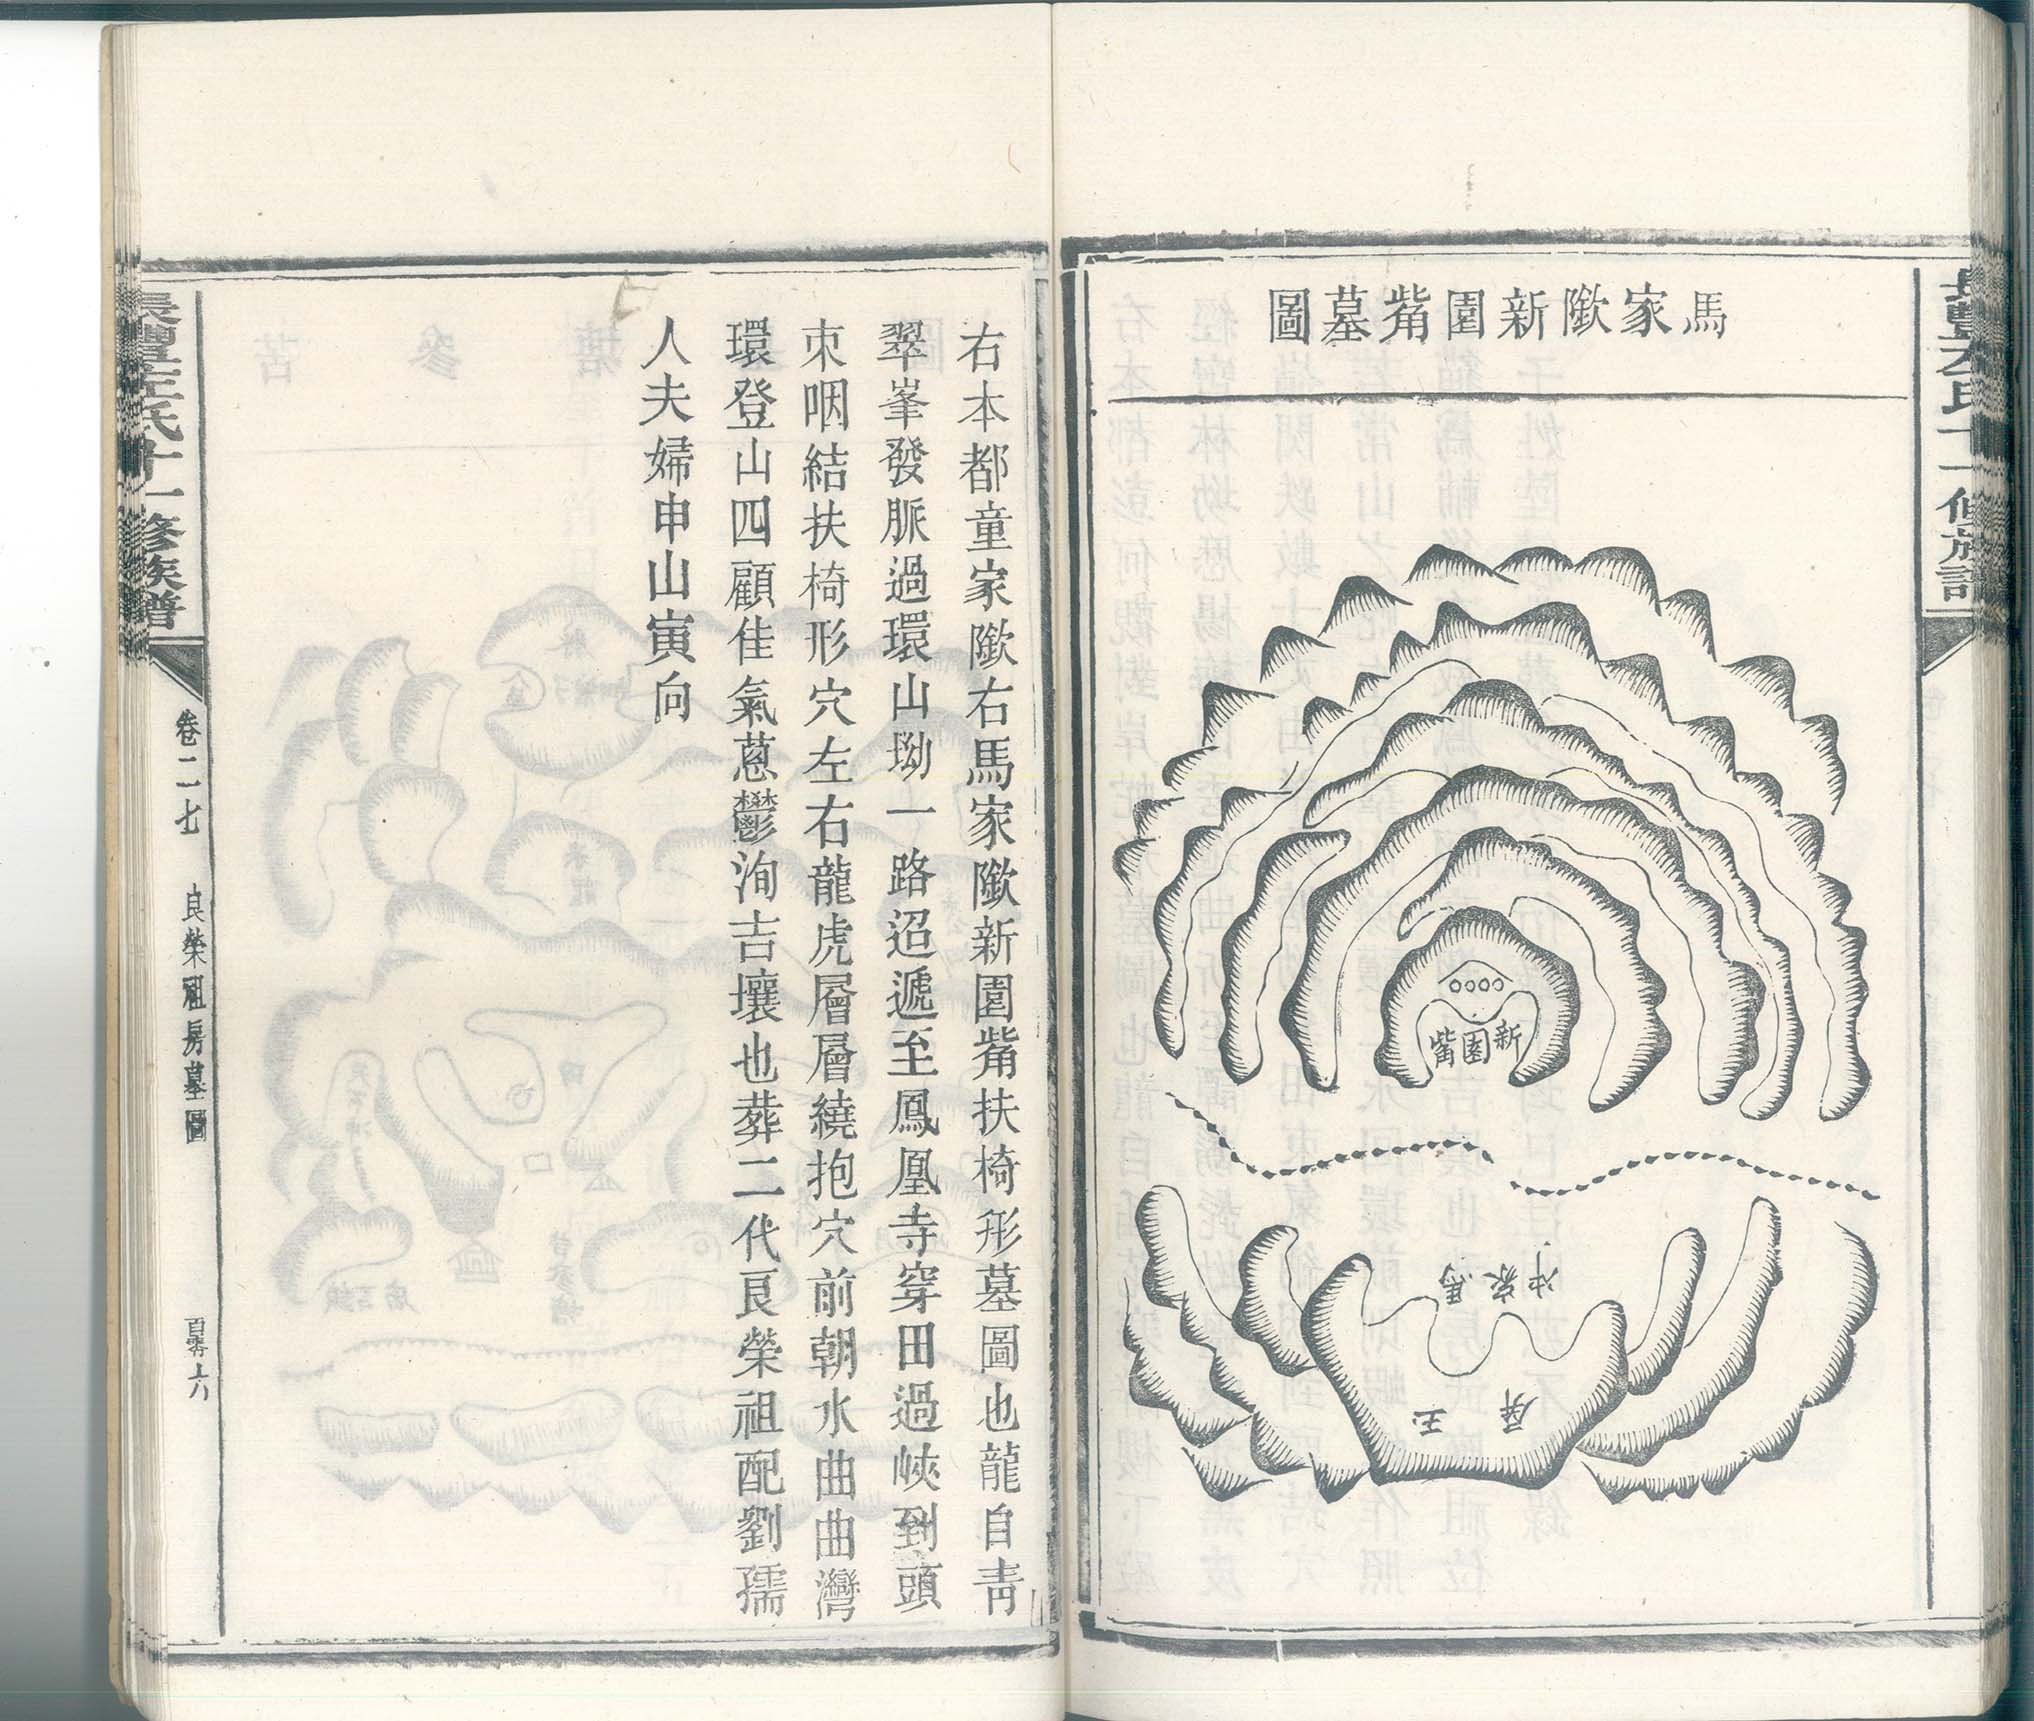 馬家歘新園觜墓圖
新園觜
馬家冲
玉屏
右本都童家隞右馬家隞新園觜扶椅形墓圖也龍自青
翠峯發脈過環山坳一路迢遞至鳳凰寺穿田過峽到頭
束咽結扶椅形穴左右龍虎層層繞抱穴前朝水曲曲灣
環登山四顧佳氣葱鬱洵吉壤也葬二代良榮祖配劉孺
人夫婦申山寅向
卷二七
良榮祖房墓圖